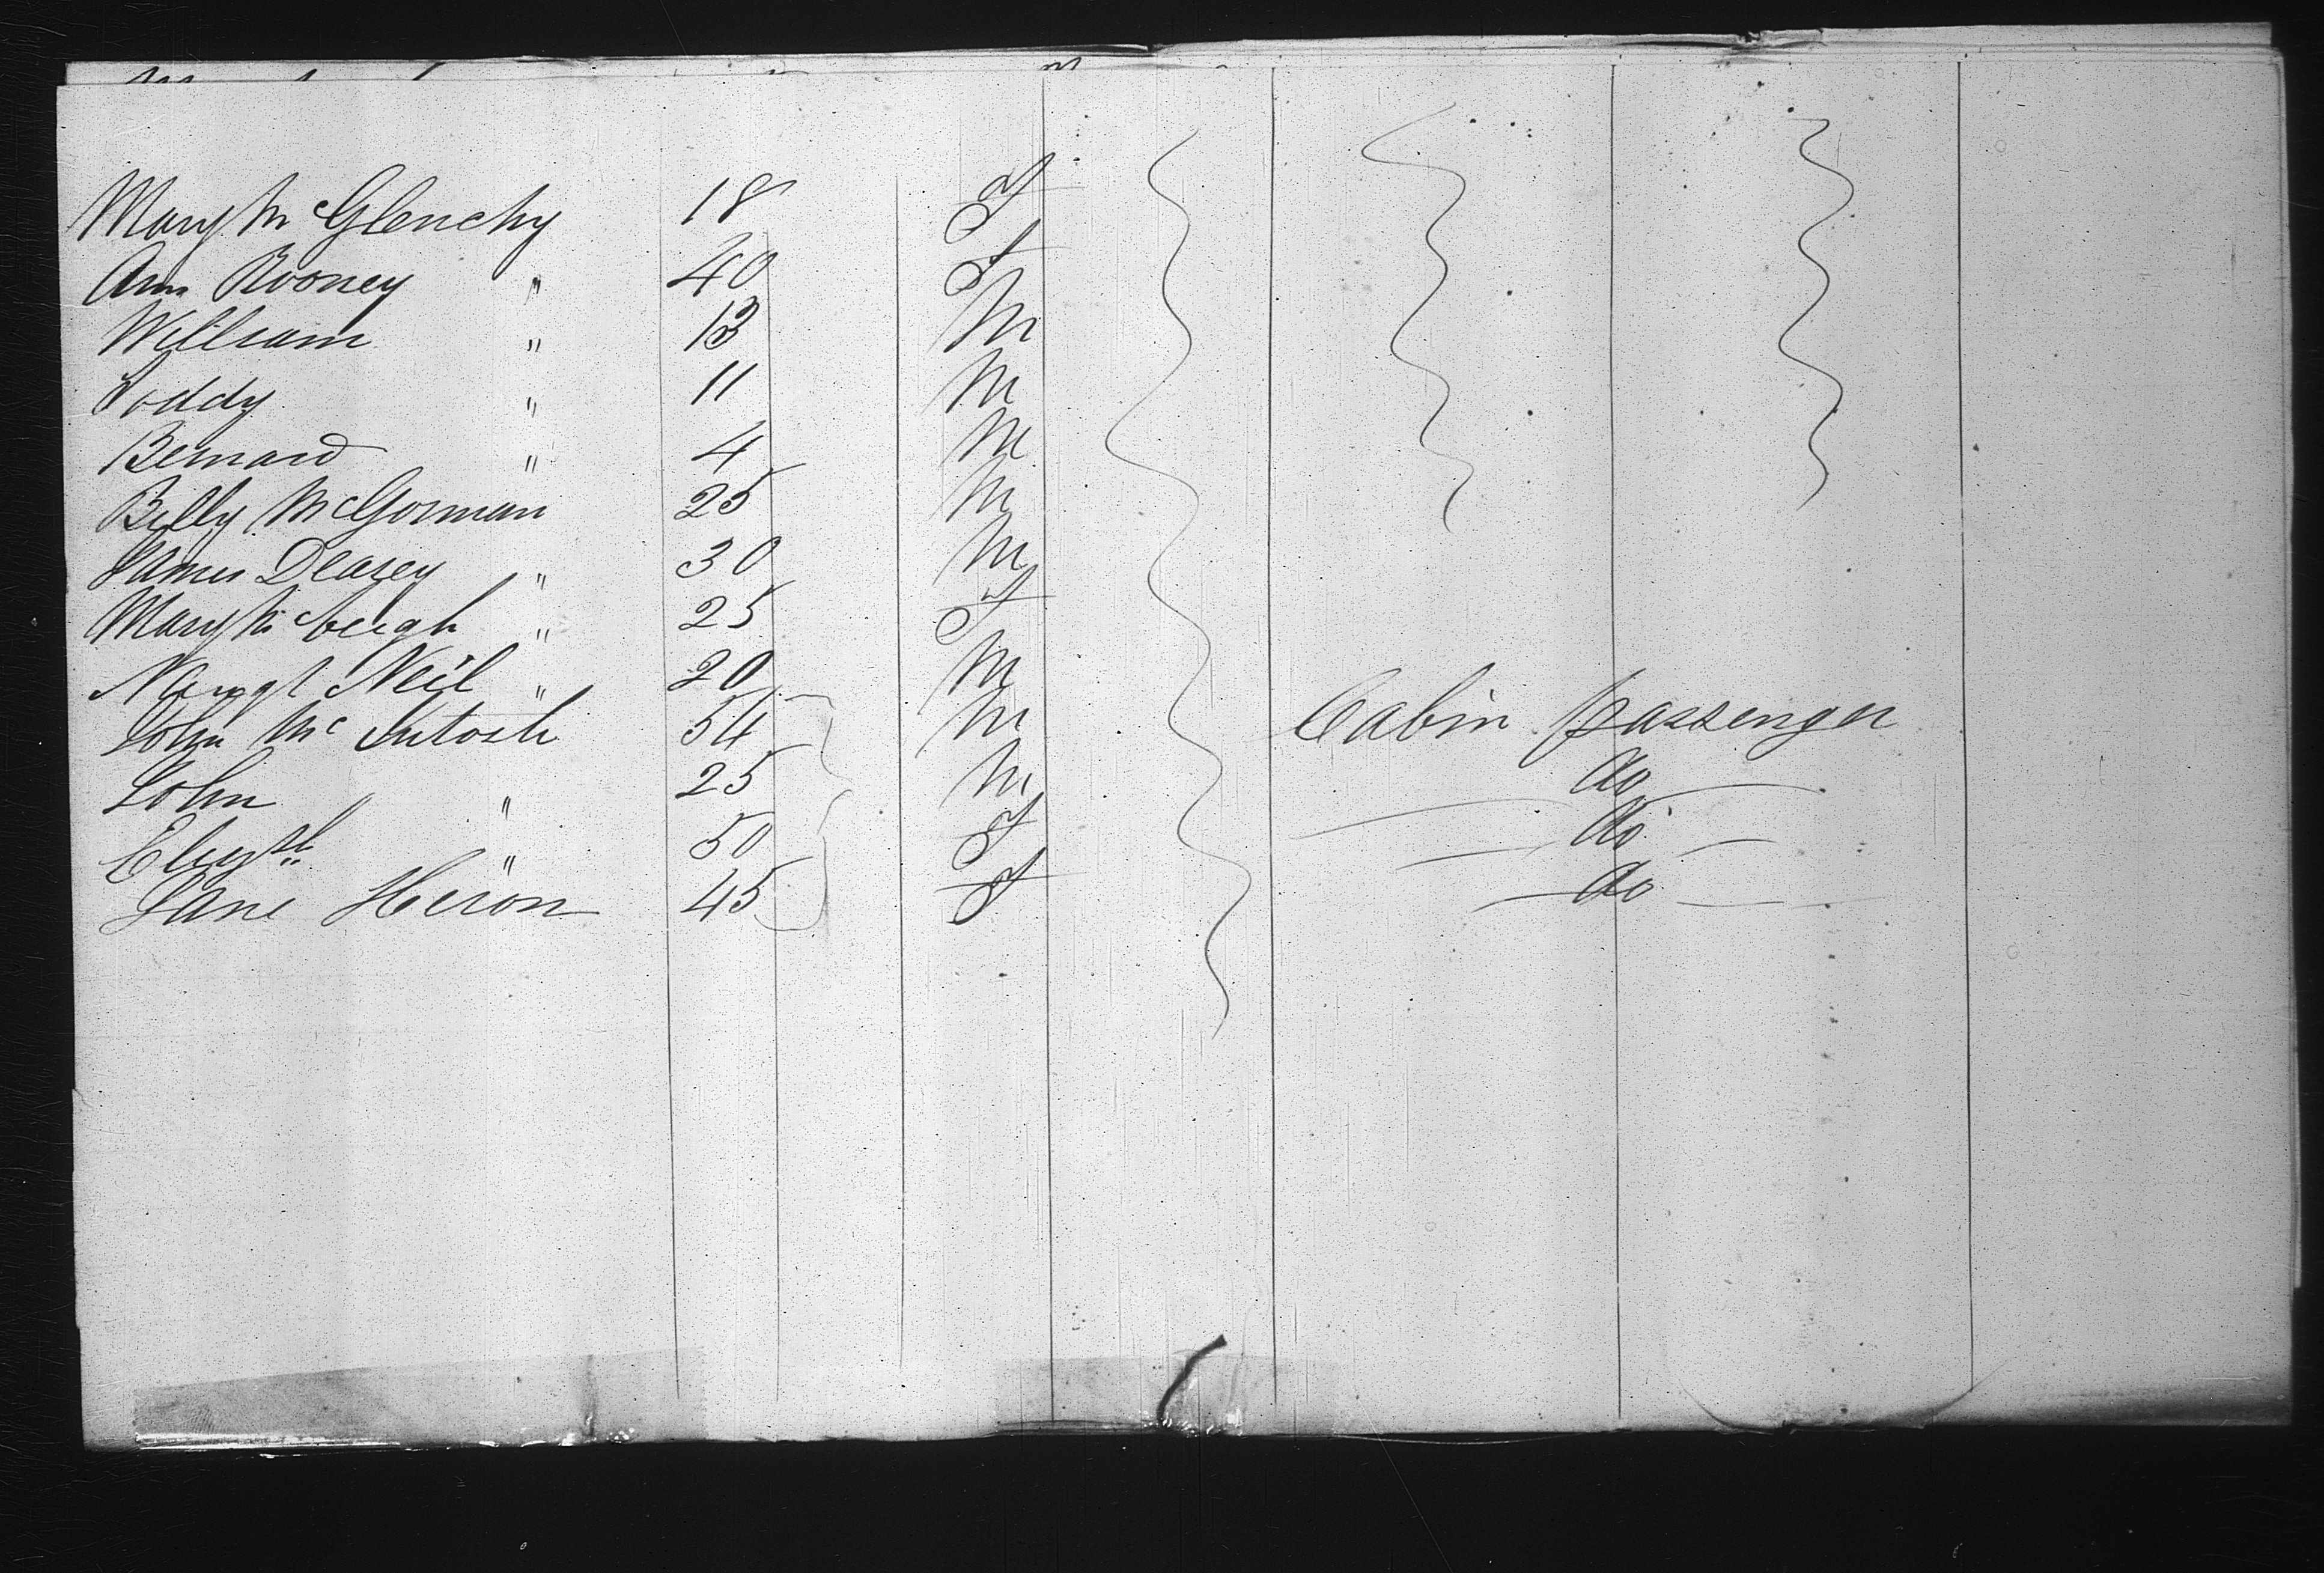 Mary Mc Glenchy 18 F
Ann Rooney " 40 F
William " 13 M
Poddy " 11 M
Bernard " 4 M
Billy McGorman 25 M
James Deasey " 30 M
Mary Mc " 25 F
Neil " 20 M
John Mc Intosh 54 M Cabin passenger
John " 25 M do
" 50 F do
Jane Heron 45 F do